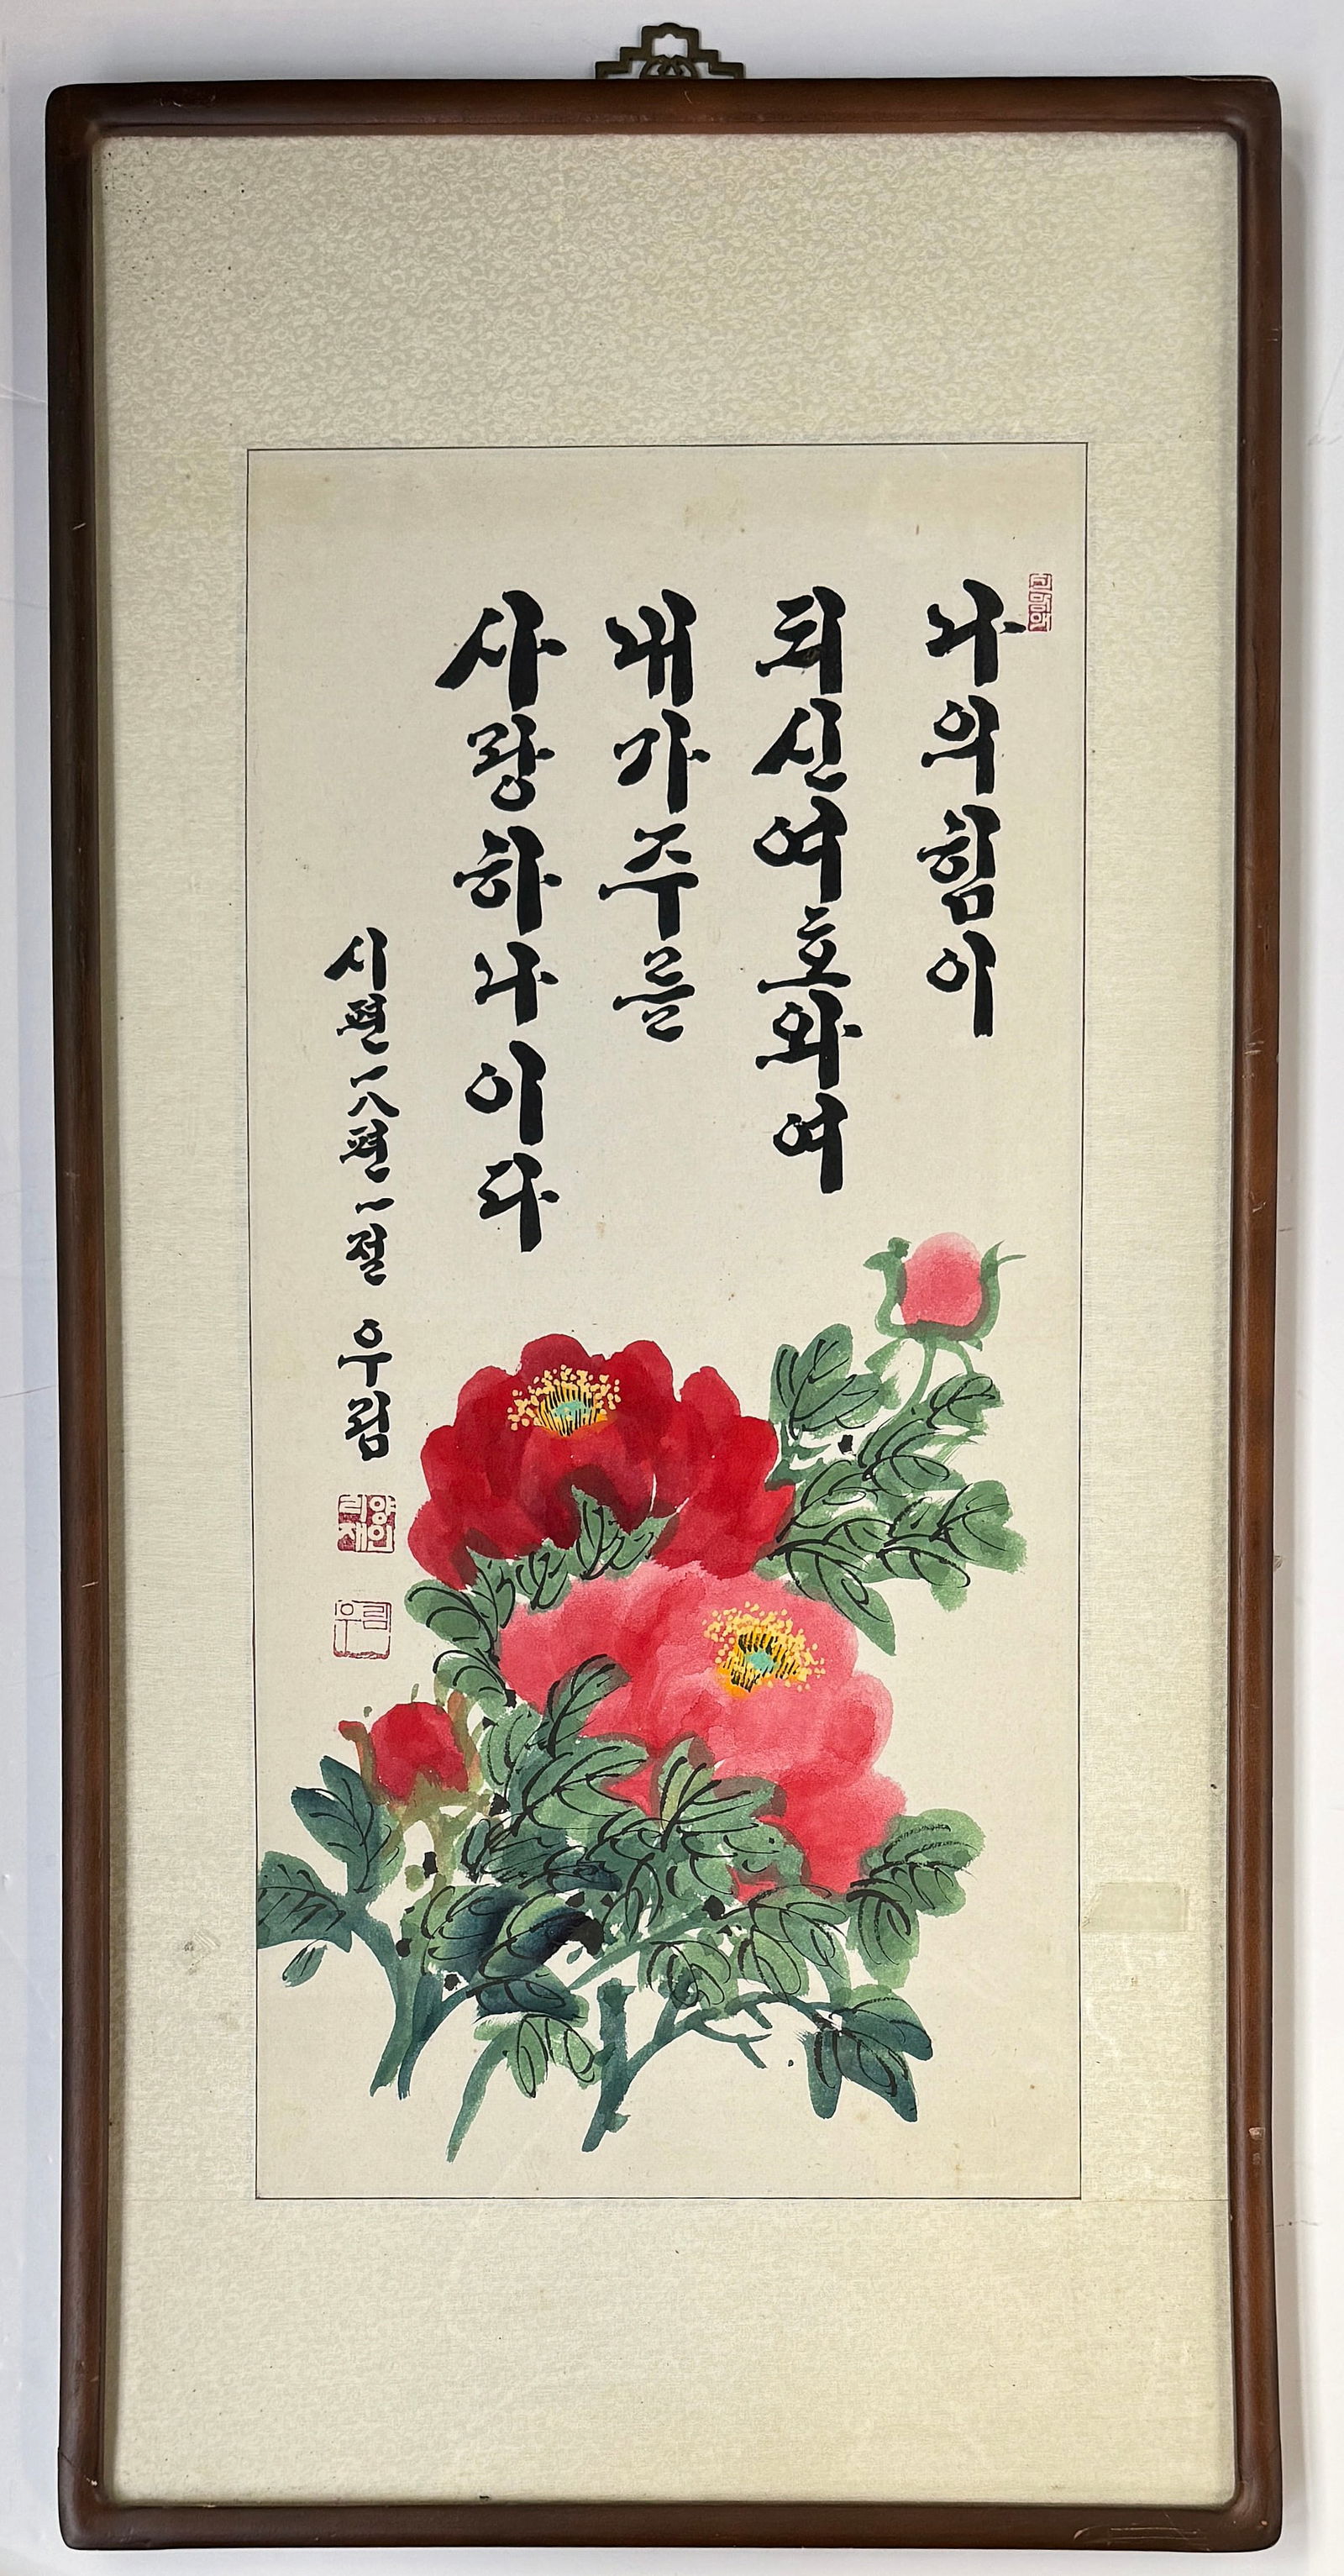 나의힘이
되신여호와여
내가주를
사랑하나이다
시편一八편一절 우림
양인
리재
우림